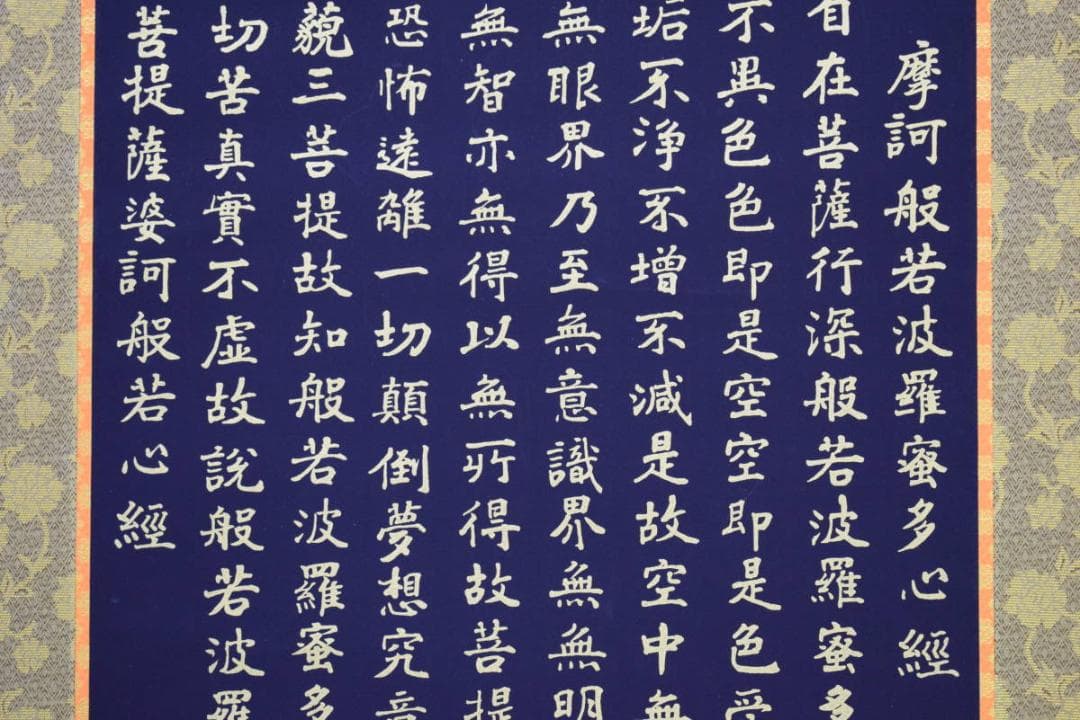 摩訶般若波羅蜜多心經
自在菩薩行深般若波羅蜜多
不異色色即是空空即是色受
垢不淨不增不減是故空中無
無眼界乃至無意識界無無明
無智亦無得以無所得故菩提
恐怖遠離一切顛倒夢想究竟
藐三菩提故知般若波羅蜜多
切苦真實不虛故說般若波羅
菩提薩婆訶般若心經